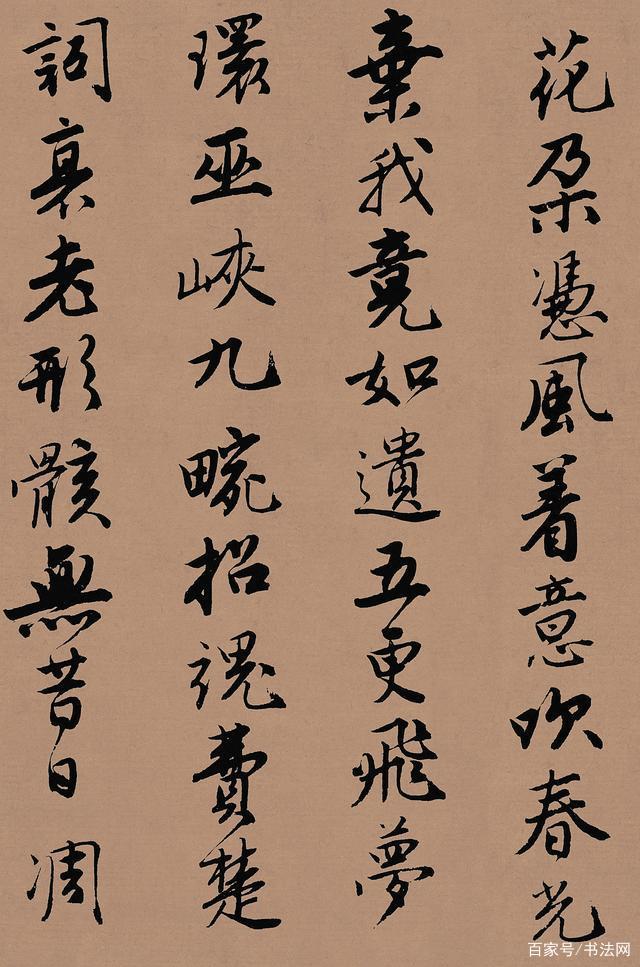 花朵憑風着意吹春光
棄我竟如遺五更飛夢
環巫峽九畹招魂費楚
詞衰老形骸無昔日凋
百家号/书法网